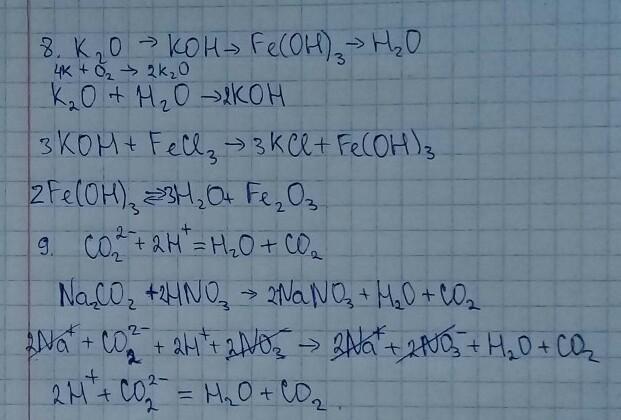 8. K₂O → KOH → Fe(OH)₃ → H₂O
4K + O₂ → 2K₂O
K₂O + H₂O → 2KOH
3KOH + FeCl₃ → 3KCl + Fe(OH)₃
2Fe(OH)₃ ⇄ 3H₂O + Fe₂O₃
9. CO₂²⁻ + 2H⁺ = H₂O + CO₂
Na₂CO₂ + 2HNO₃ → 2NaNO₃ + H₂O + CO₂
2Na⁺ + CO₂²⁻ + 2H⁺ + 2NO₃⁻ → 2Na⁺ + 2NO₃⁻ + H₂O + CO₂
2H⁺ + CO₂²⁻ = H₂O + CO₂.